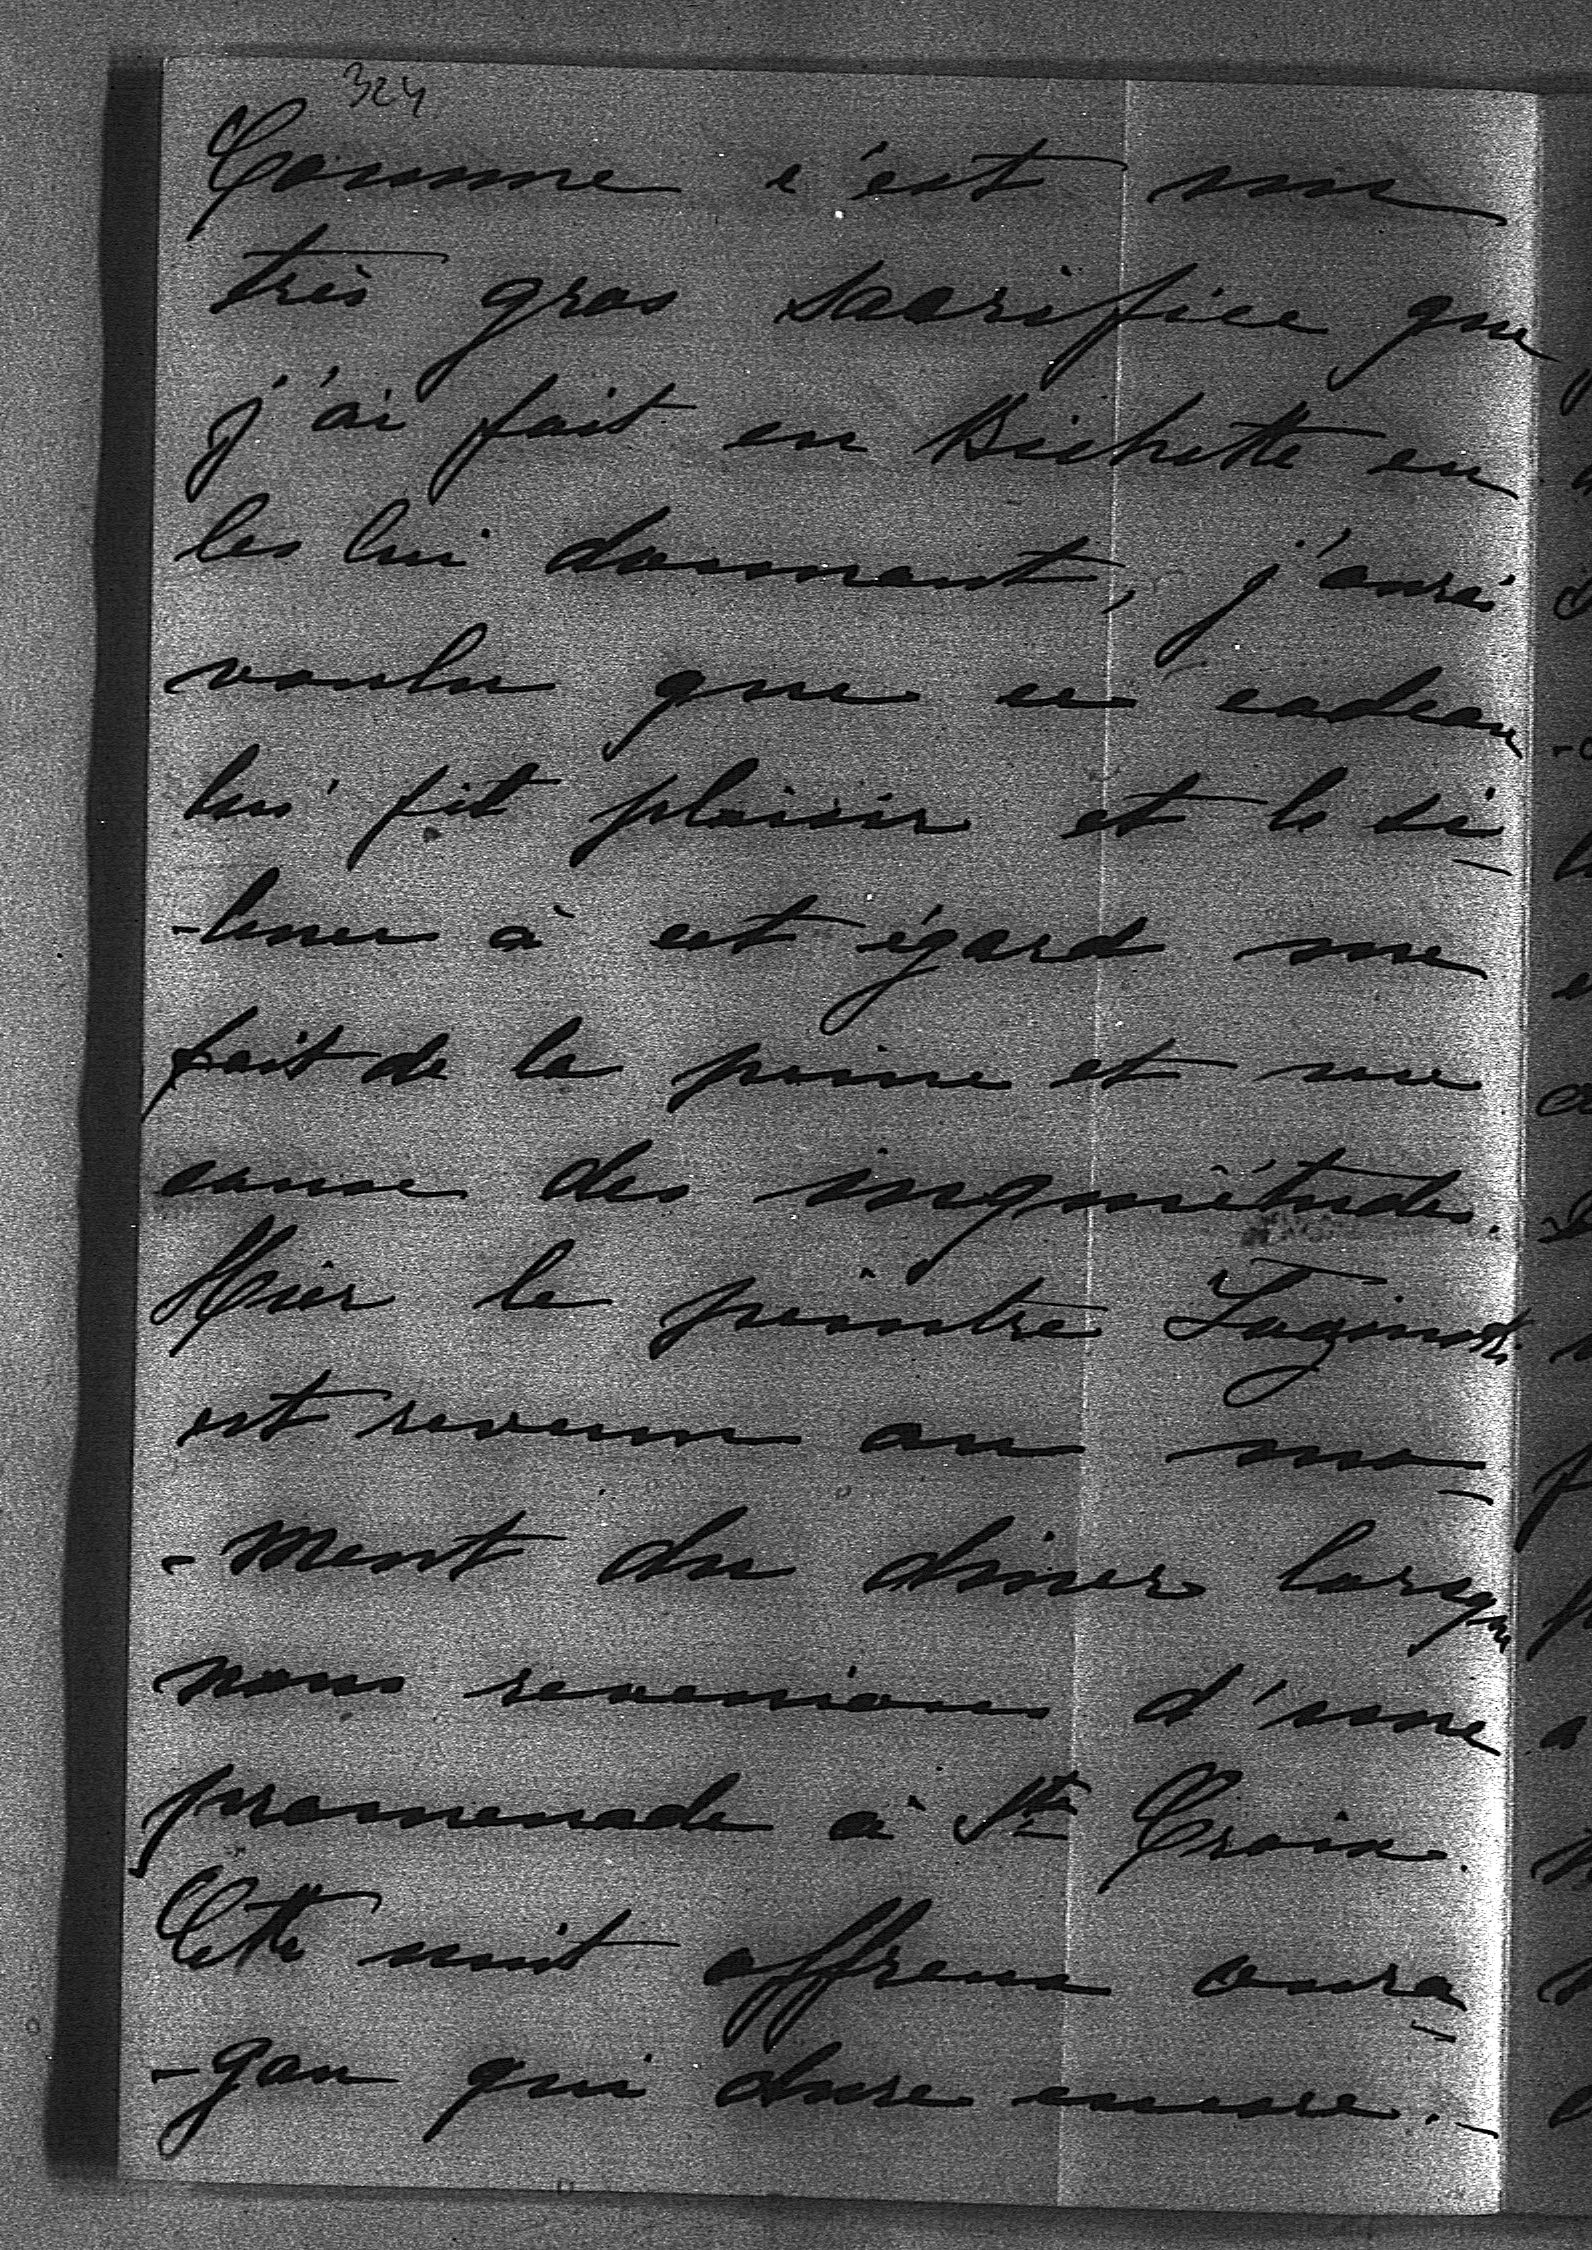 324
Comme c'est un
très gros sacrifice que
j'ai fait en Bichette en
les lui donnant, j'aurai
voulu que ce cadeau
lui fit plaisir et le si-
-lence à cet égard me
fait de la peine et me
cause des inquiétudes.
Hier le peintre
est revenu au mo-
-ment du diner lorsque
nous revenions d'une
promenade à Ste Croix.
Cette nuit affreux oura-
-gan qui dure encore. -